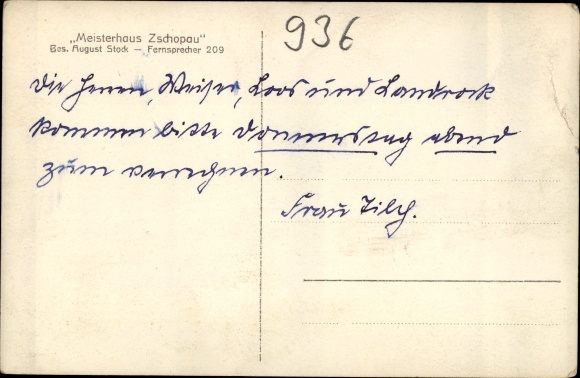 „Meisterhaus Zschopau"
Bes. August Stock — Fernsprecher 209
936
die Herren, Weiser, Loos und Landrock
kommen bitte Donnerstag abend
zum verrechnen.
Frau Tilch.